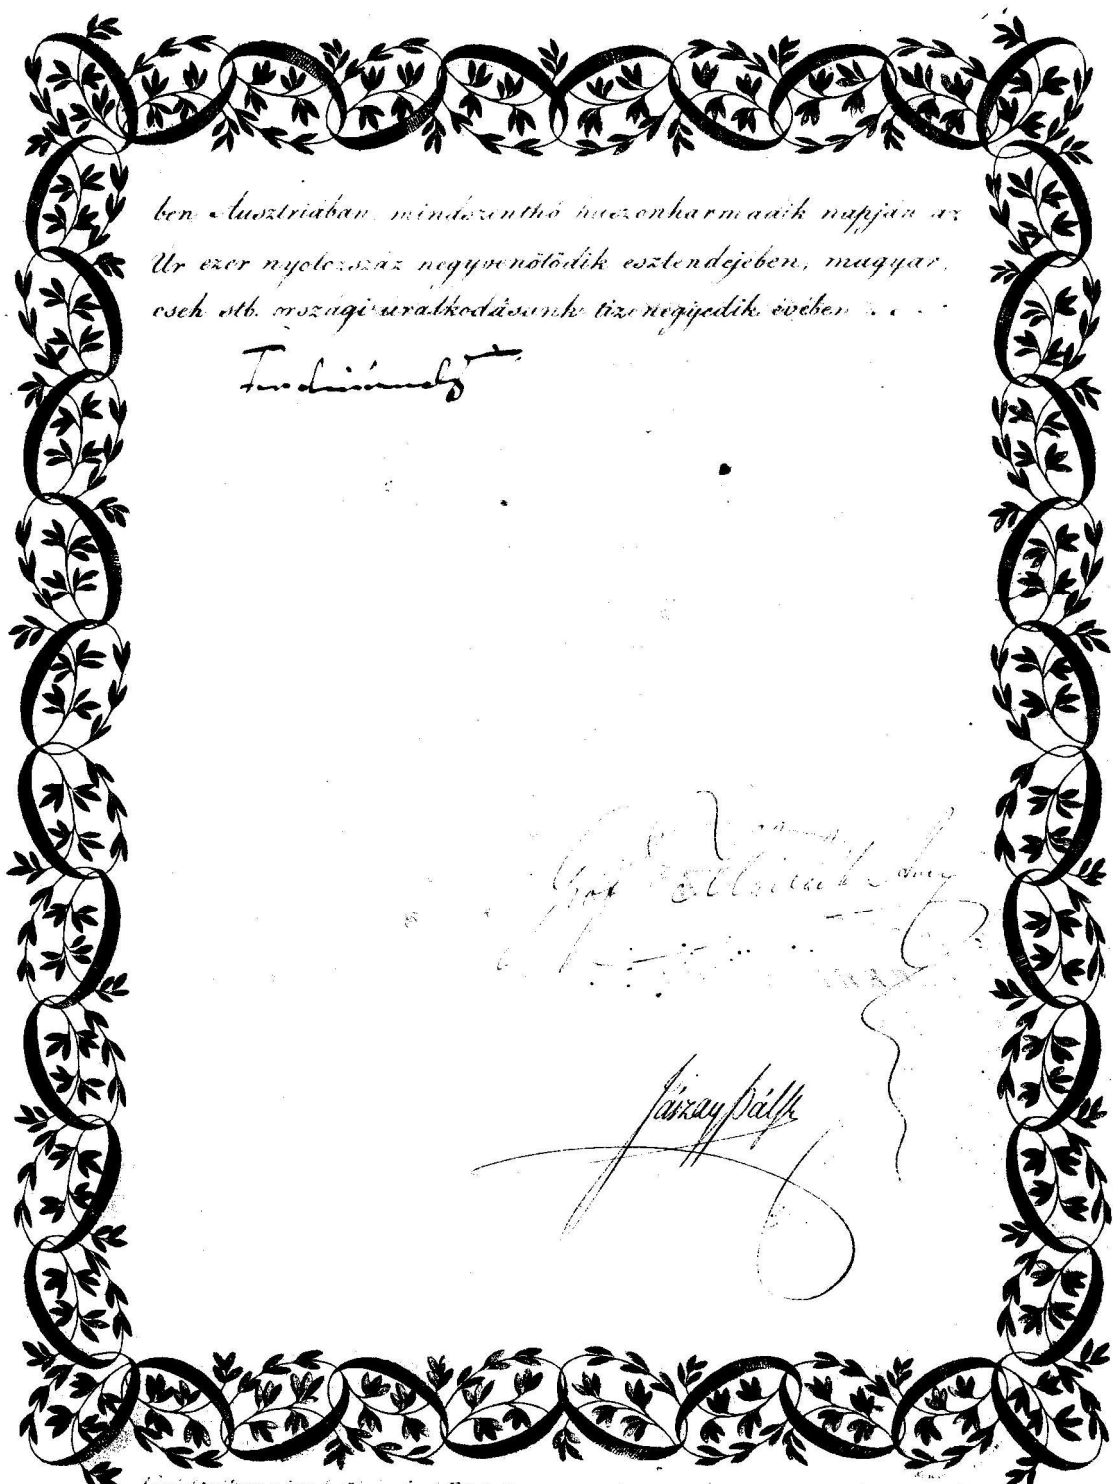 ben Ausztriában, mindszenthó huszonharmadik napján az
Úr ezer nyolczszáz negyvenötödik esztendejében, magyar,
cseh stb. országi uralkodásunk tizenegyedik évében
Ferdinánd
Gróf
Jászay Pál